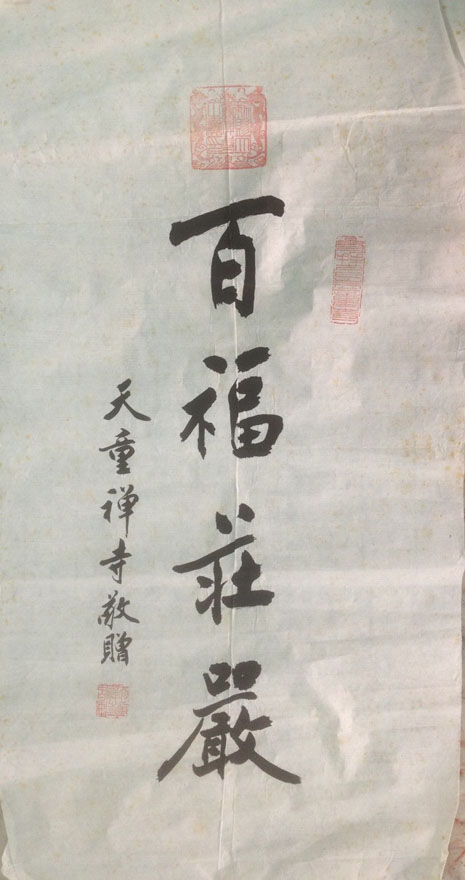 百福莊嚴
天童禅寺敬贈